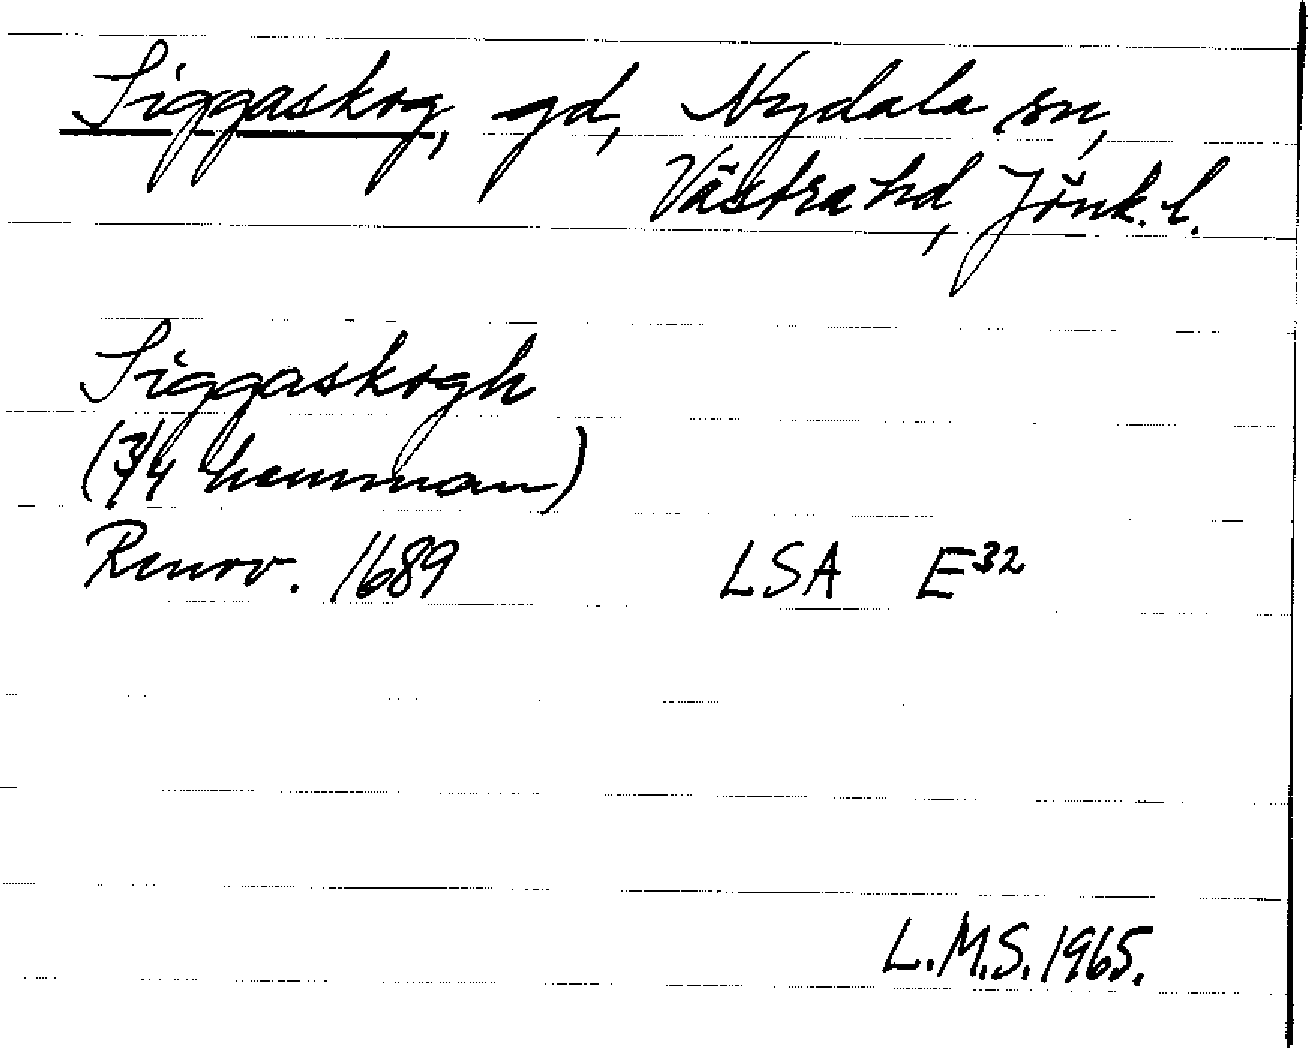 Siggaskog, gd, Nydala sn,
Västra hd, Jönk. l.
Siggaskogh
(3/4 hemman)
Renov. 1689 LSA E32
L.M.S. 1965.